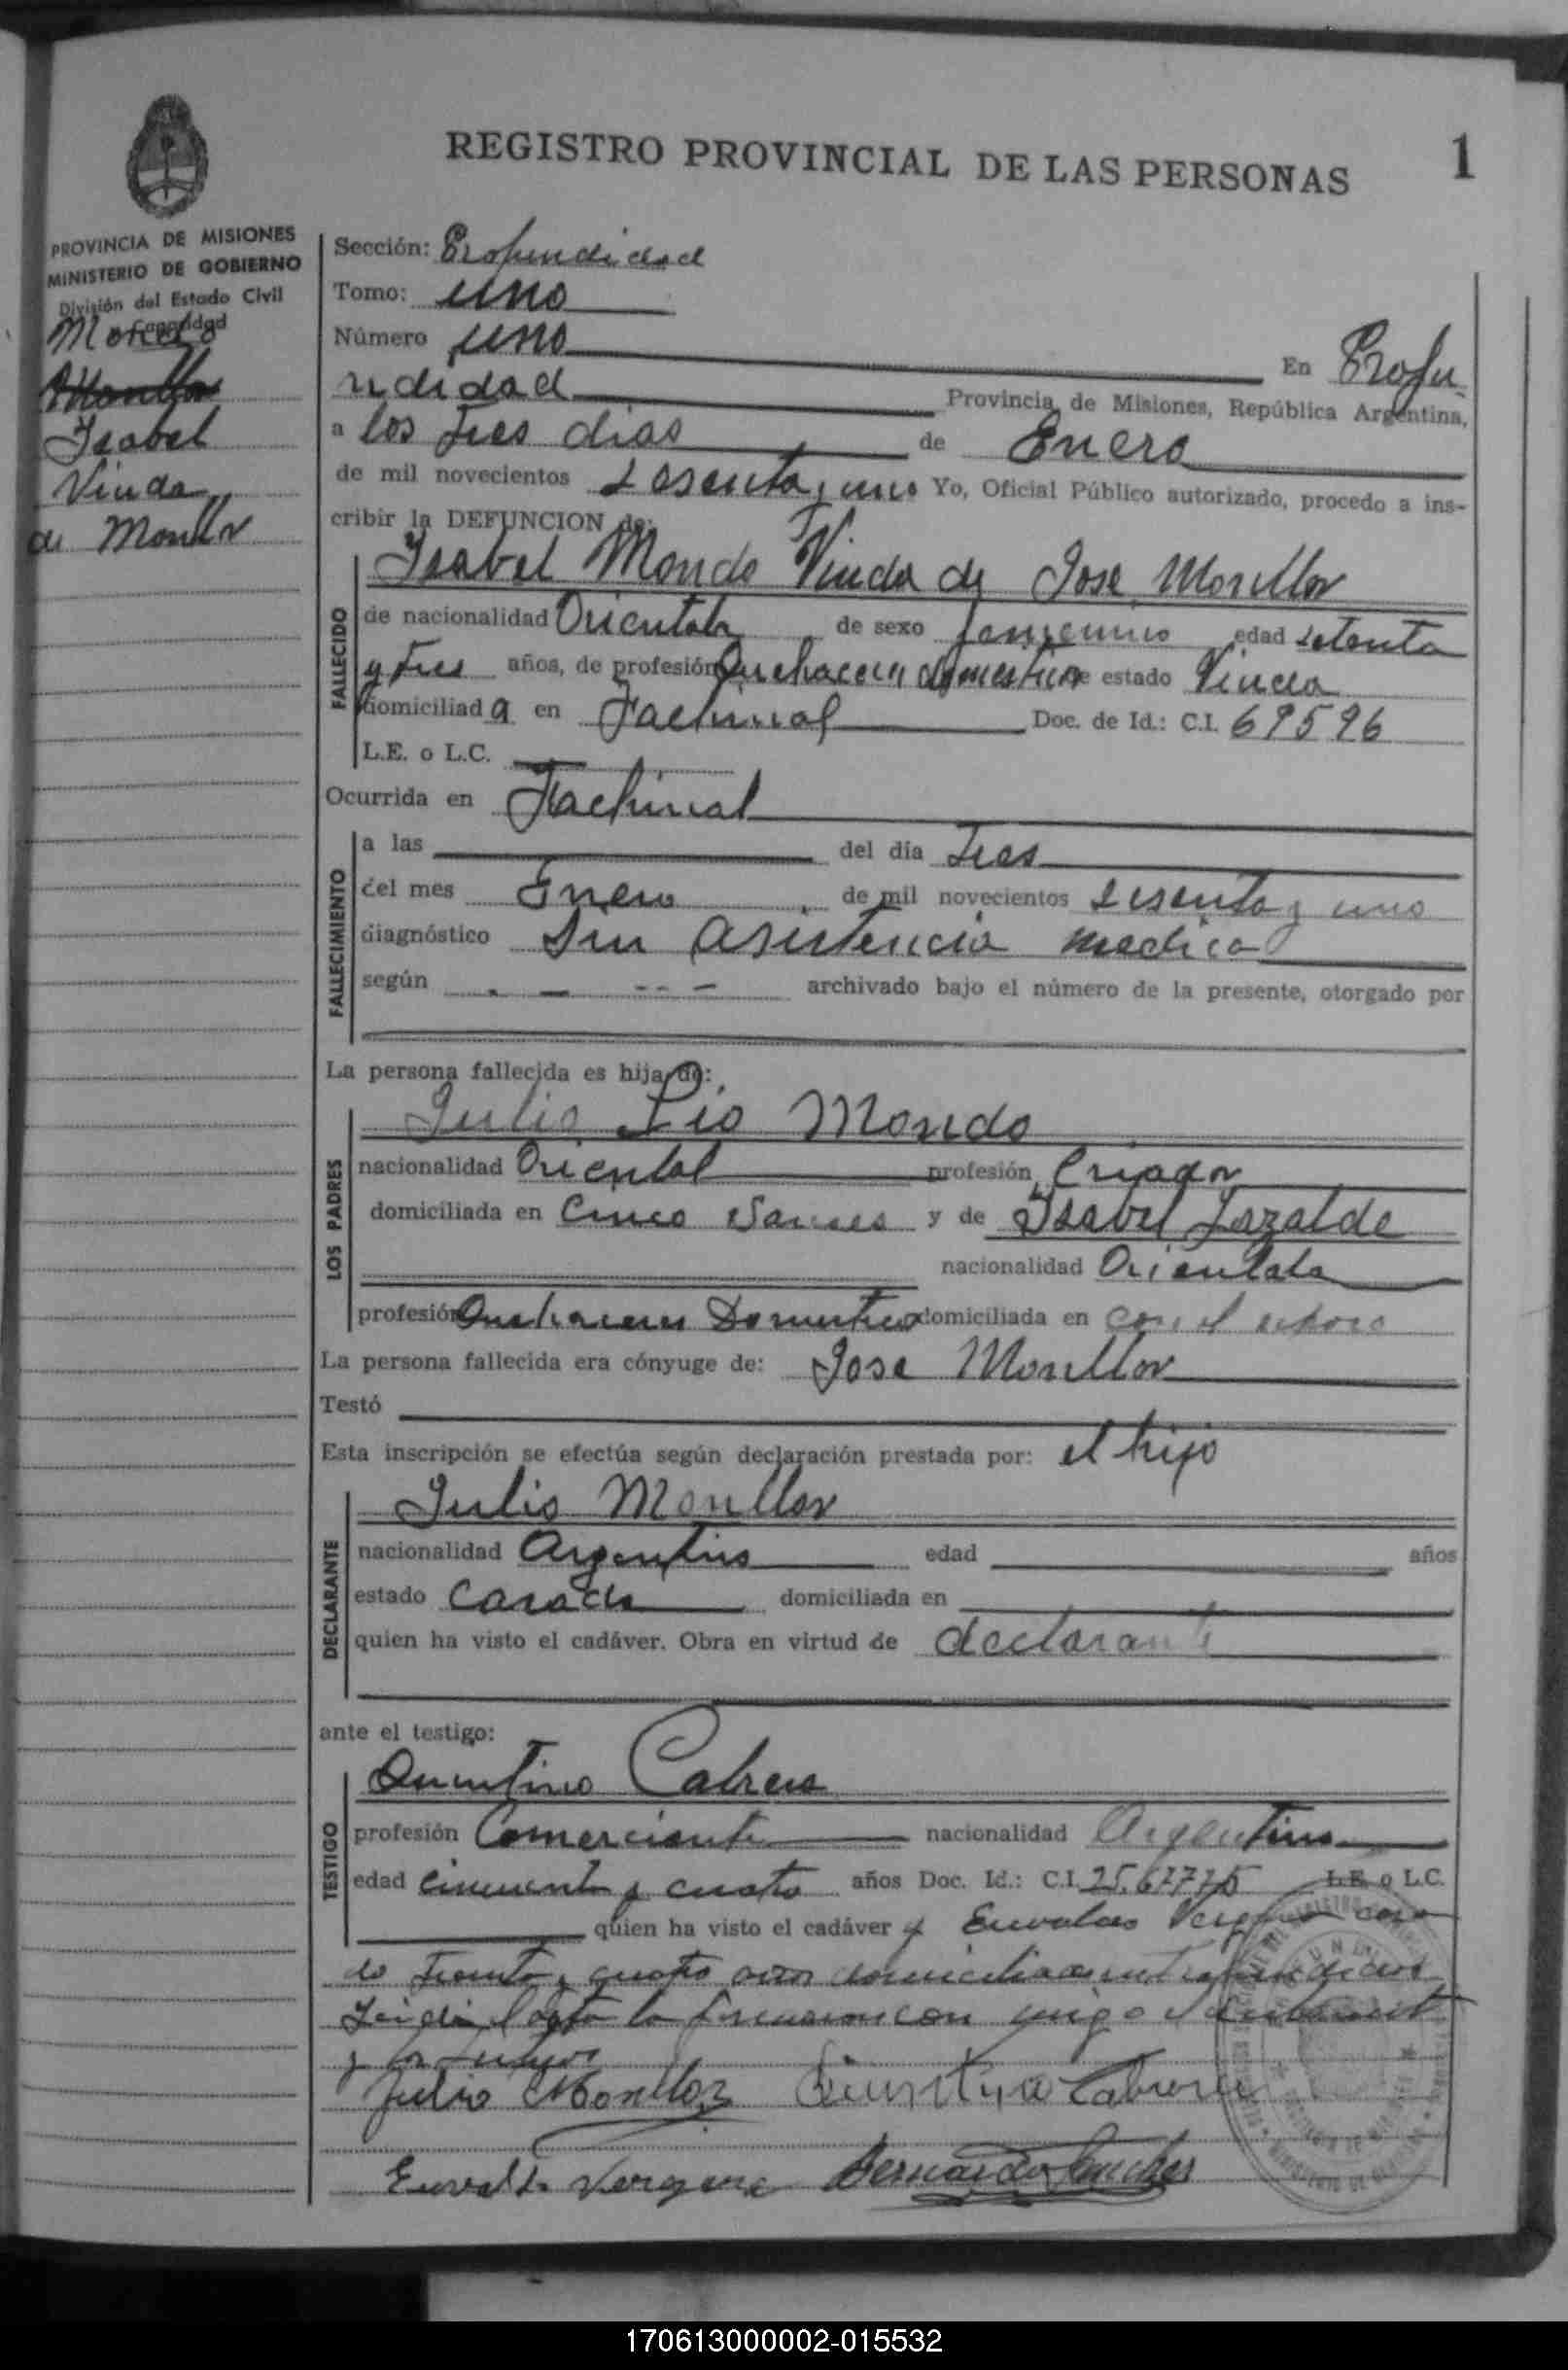 REGISTRO PROVINCIAL DE LAS PERSONAS
1
PROVINCIA DE MISIONES
MINISTERIO DE GOBIERNO
División del Estado Civil
y Capacidad
Mondo
Isabel
Viuda
de Monllor
Sección: Profundidad
Tomo: uno
Número uno
En Profu
ndidad Provincia de Misiones, República Argentina,
a los tres dias de Enero
de mil novecientos sesenta y uno Yo, Oficial Público autorizado, procedo a ins-
cribir la DEFUNCION de:
Isabel Mondo Viuda de Jose Monllor
FALLECIDO
de nacionalidad Orientala de sexo femenino edad setenta
y tres años, de profesión Quehaceres domesticos de estado Viuda
domiciliada en Fachinal Doc. de Id.: C.I. 69596
L.E. o L.C.
Ocurrida en Fachinal
FALLECIMIENTO
a las del día tres
del mes Enero de mil novecientos sesenta y uno
diagnóstico Sin asistencia medica
según archivado bajo el número de la presente, otorgado por
La persona fallecida es hija de:
Julio Pio Mondo
LOS PADRES
nacionalidad Oriental profesión Criador
domiciliada en Cinco y de Isabel Lazalde
nacionalidad Orientala
profesión Quehaceres Domestico domiciliada en con el
La persona fallecida era cónyuge de: Jose Monllor
Testó
Esta inscripción se efectúa según declaración prestada por: el hijo
Julio Monllor
DECLARANTE
nacionalidad Argentino edad años
estado Casado domiciliada en
quien ha visto el cadáver. Obra en virtud de declarante
ante el testigo:
Quintino Cabrera
TESTIGO
profesión Comerciante nacionalidad Argentino
edad cincuenta y cuatro años Doc. Id.: C.I. L.E. o L.C.
quien ha visto el cadáver y Euvaldo Vergara casa
do treinta y cuatro años
Leida el acta la firmaron conmigo el declarante
y los testigos
Julio Monllor Quintino Cabrera
Euvaldo Vergara Bernardo Sanchez
170613000002-015532